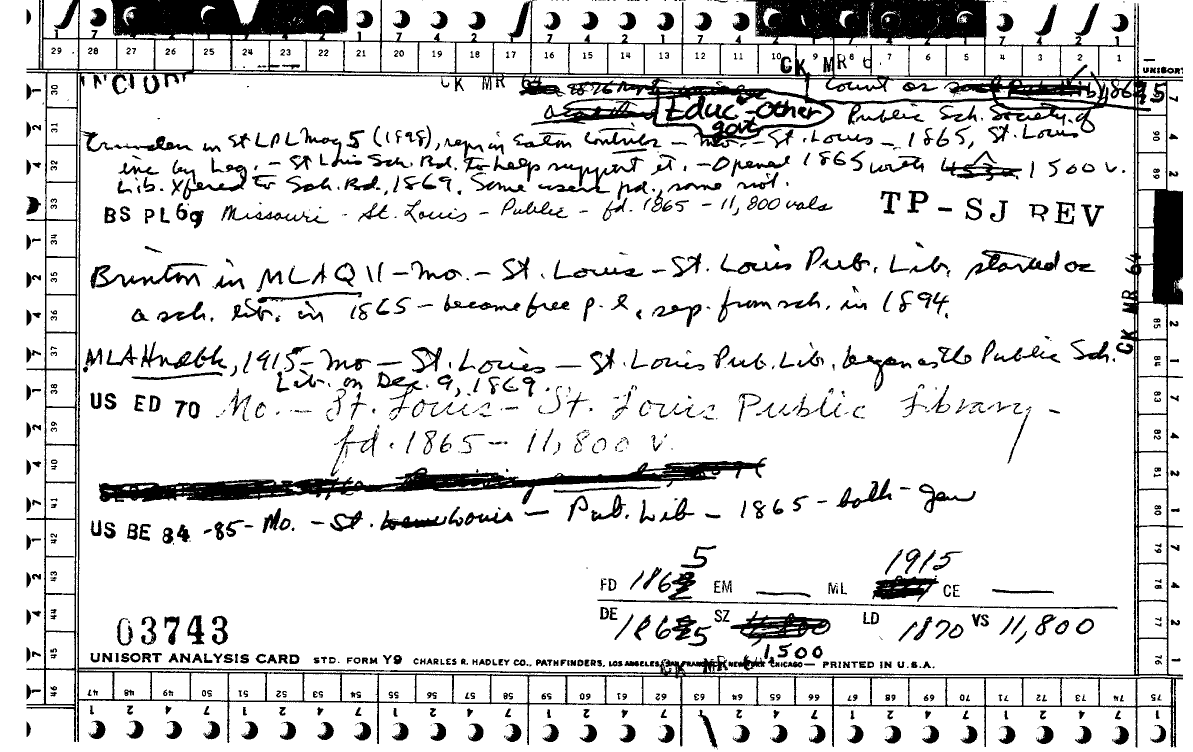 29 28 27 26 25 24 23 22 21 20 19 18 17 16 15 14 13 12 11 10 9 8 7 6 5 4 3 2 1
UNISORT
CK MR 6
CK MR 64
Count as
Educ-Other
govt
Public Sch. Society of
in St LPL May 5 (1898), repr in Eaton Contribs - Mo. - St. Louis - 1865, St. Louis
inc by Leg. - St Louis Sch. Bd. to help support it. - Opened 1865 with 1500 v.
Lib. Xfered to Sch. Bd, 1869. Some users pd., some not.
BS PL 69 Missouri - St. Louis - Public - fd. 1865 - 11,800 vols
TP-SJ REV
Brinton in MLAQ 11 - Mo. - St. Louis - St. Louis Pub. Lib. started as
a sch. lib. in 1865 - became free p. l., sep. from sch. in 1894.
CK MR 64
MLA Hndbk, 1915 - Mo - St. Louis - St. Louis Pub. Lib. began as the Public Sch.
Lib. on Dec. 9, 1869.
US ED 70 Mo. - St. Louis - St. Louis Public Library -
fd. 1865 - 11,800 v.
US BE 84-85 - Mo. - St. Louis - Pub. Lib - 1865 - both - gen
FD 1865 EM ___ ML 1915 CE ___
DE 1865 SZ 1,500 LD 1870 VS 11,800
03743
UNISORT ANALYSIS CARD STD. FORM Y9 CHARLES R. HADLEY CO., PATHFINDERS, LOS ANGELES, SAN FRANCISCO, NEW YORK, CHICAGO — PRINTED IN U.S.A.
CK MR 64
47 48 49 50 51 52 53 54 55 56 57 58 59 60 61 62 63 64 65 66 67 68 69 70 71 72 73 74 75